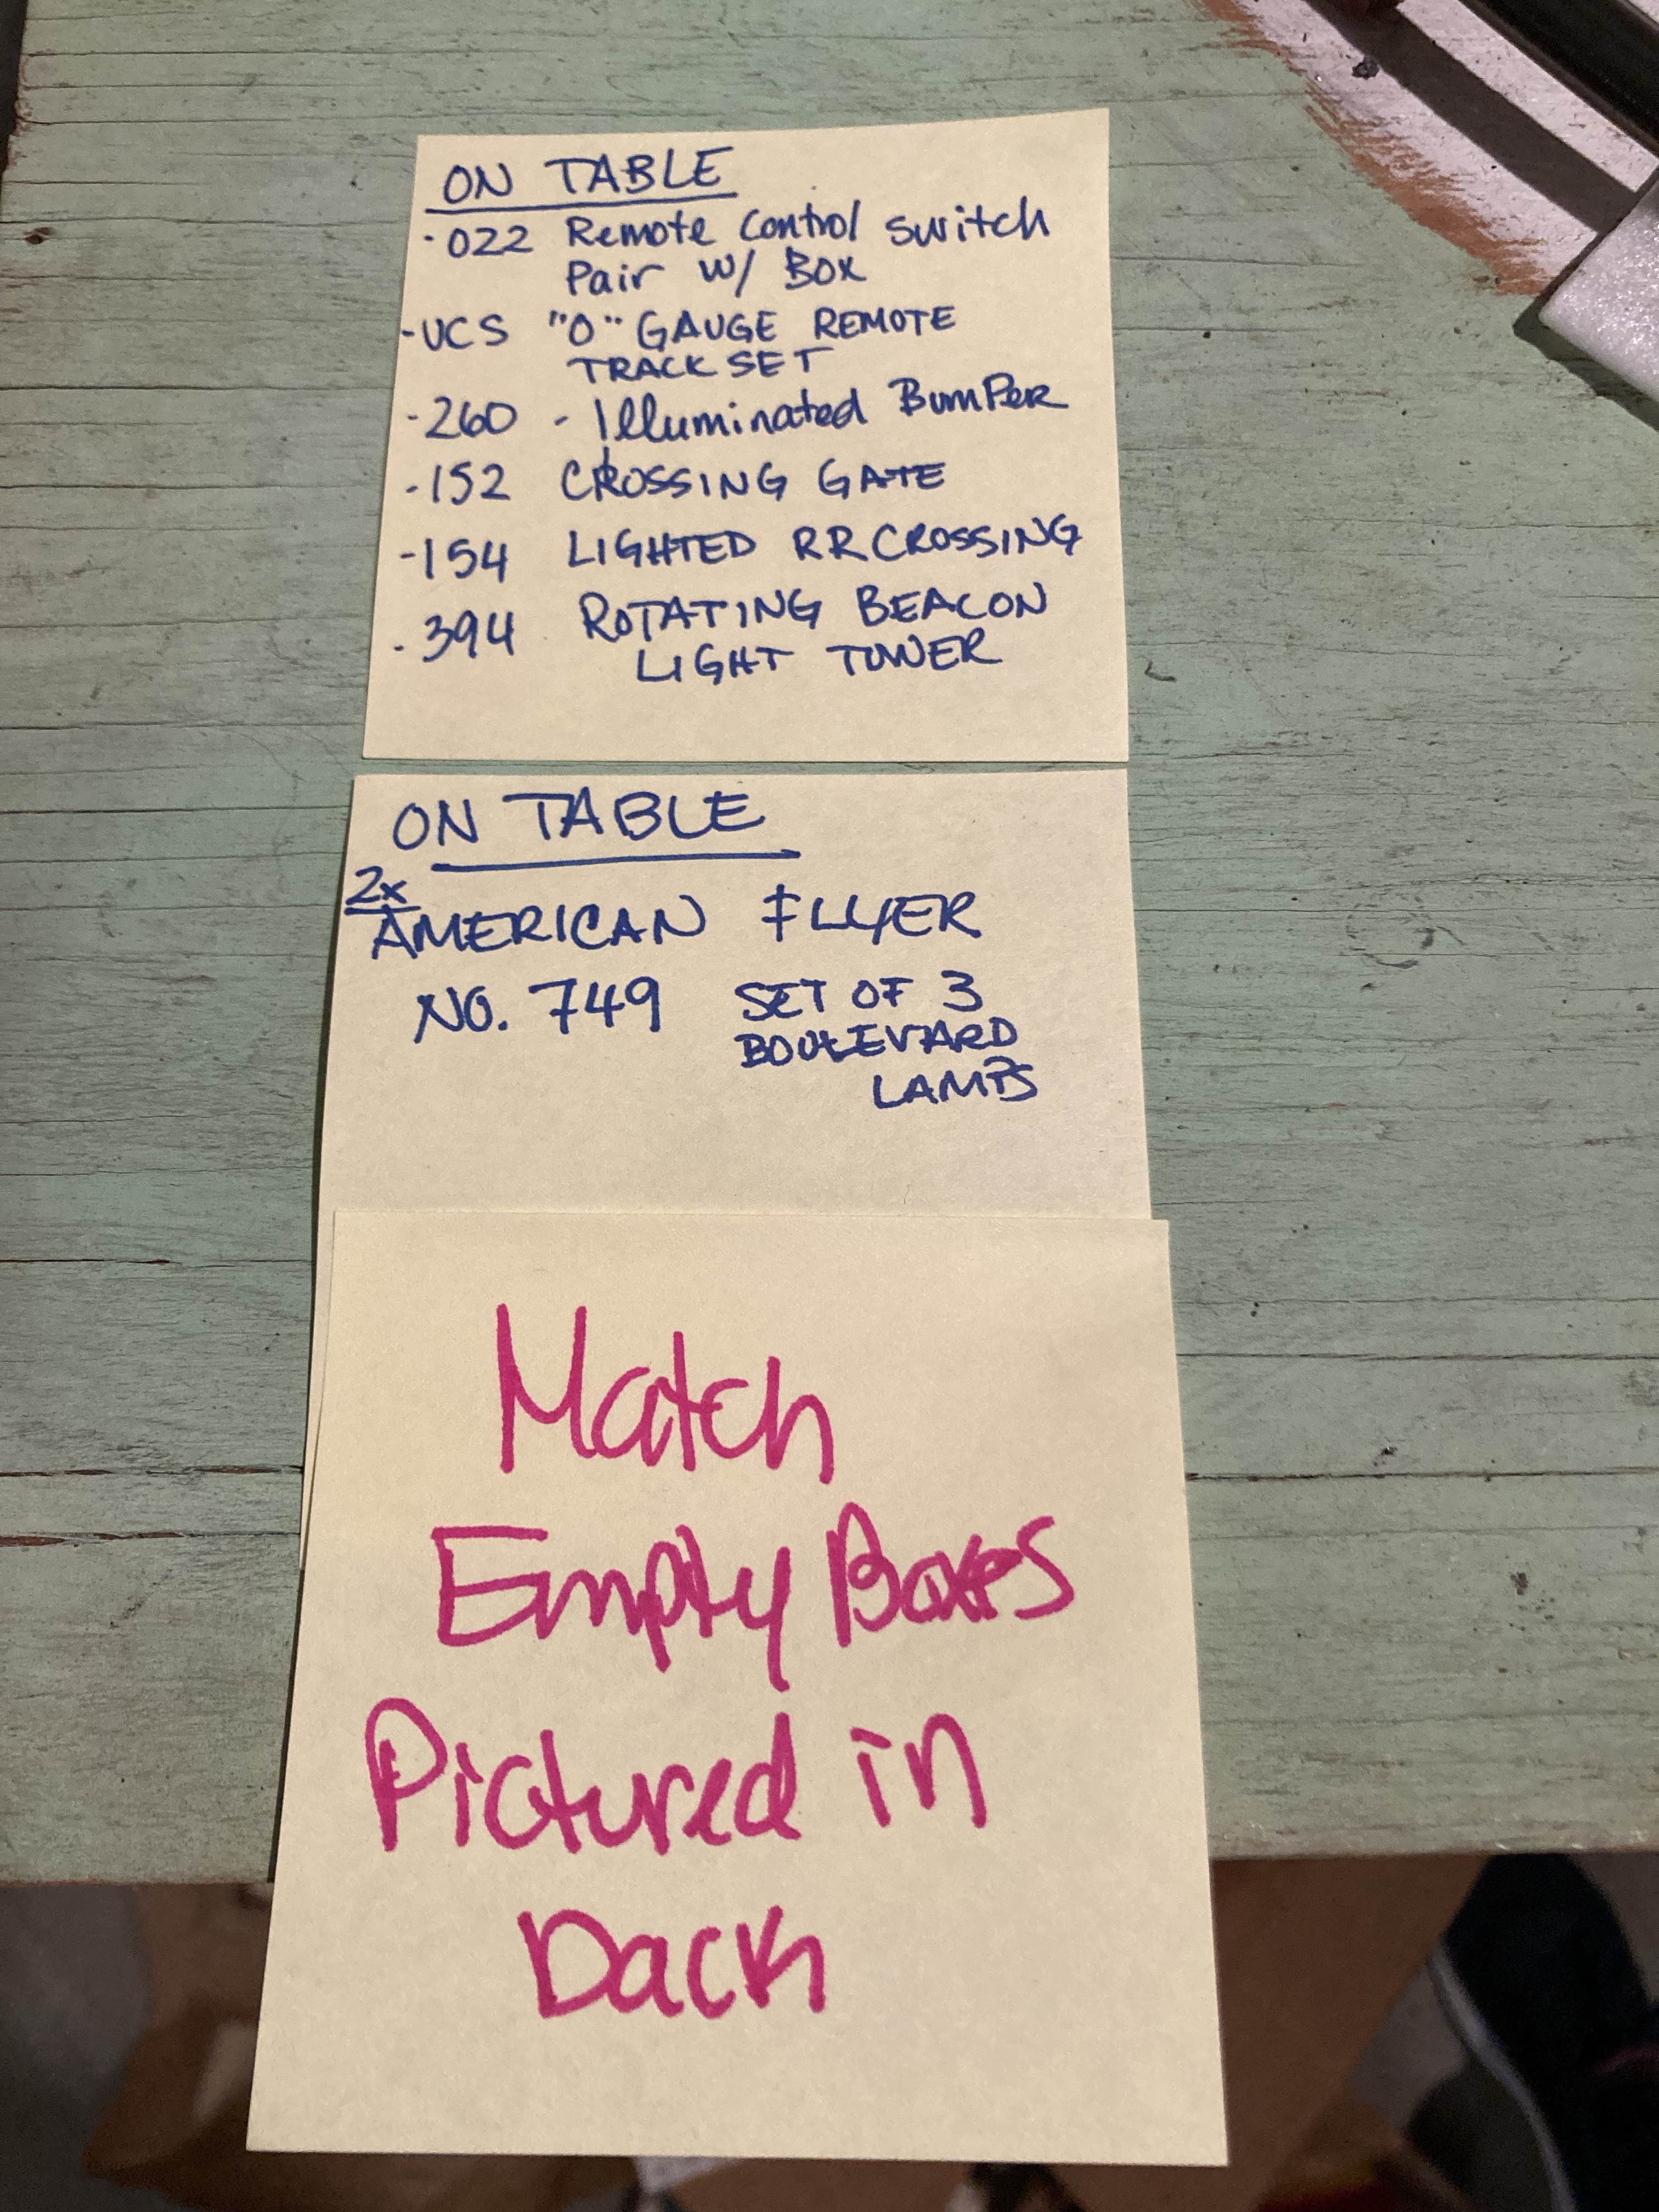 ON TABLE
·022 Remote Control Switch
Pair w/ Box
-UCS "O" GAUGE REMOTE
TRACK SET
-260 - Illuminated BumPer
-152 CROSSING GATE
-154 LIGHTED RR CROSSING
·394 ROTATING BEACON
LIGHT TOWER
ON TABLE
2x
AMERICAN FLYER
NO. 749 SET OF 3
BOULEVARD
LAMPS
Match
Empty Boxes
Pictured in
Back